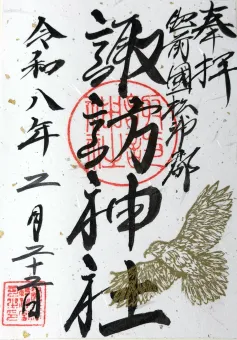 奉拝
肥前國松浦郡
諏訪神社
令和八年二月二十二日